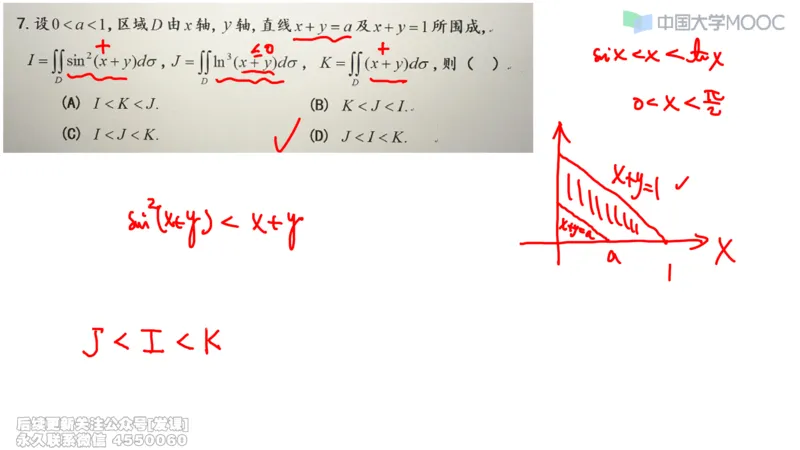 中国大学MOOC
7. 设 0 < a < 1, 区域 D 由 x 轴, y 轴, 直线 x + y = a 及 x + y = 1 所围成,
+ ≤0 +
I = ∬_D sin²(x + y)dσ, J = ∬_D ln³(x + y)dσ, K = ∬_D (x + y)dσ, 则 ( )
(A) I < K < J. (B) K < J < I.
(C) I < J < K. ✓ (D) J < I < K.
sin x < x < tan x
0 < x < π/2
x+y=1 ✓
x+y=a
a 1 X
sin²(x+y) < x+y
J < I < K
后续更新关注公众号[发课]
永久联系微信 4550060